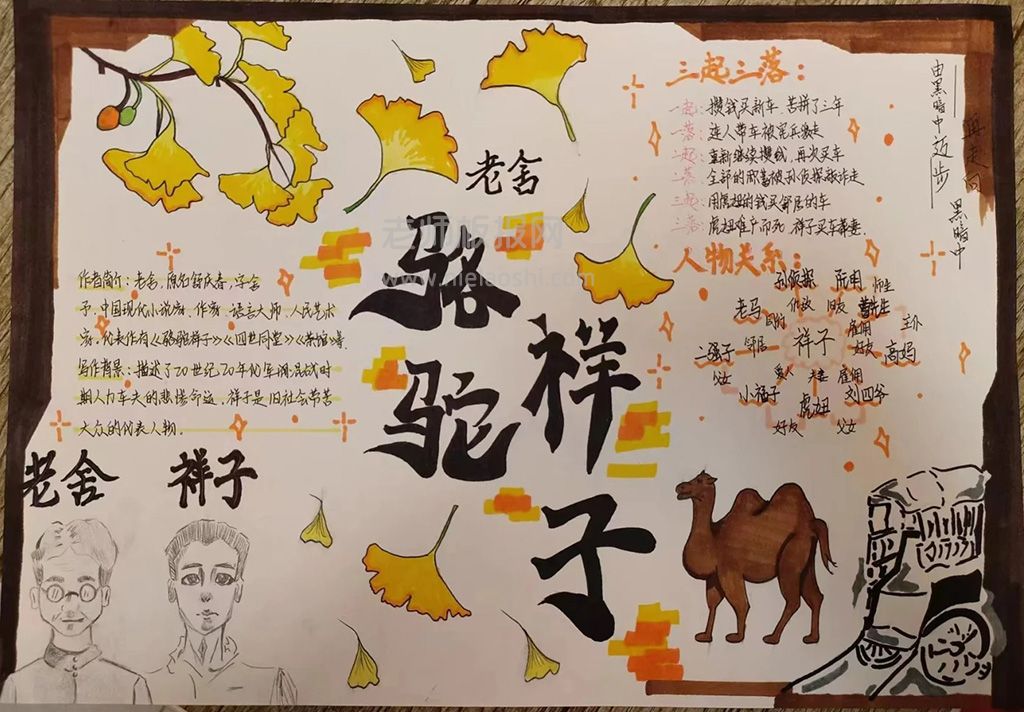 老舍
骆驼
祥子
三起三落：
一起：攒钱买新车，苦拼了三年
一落：连人带车被宪兵掳走
二起：重新继续攒钱，再次买车
二落：全部的积蓄被孙侦探敲诈走
三起：用虎妞的钱买邻居的车
三落：虎妞难产而死，祥子买车葬妻．
由黑暗中迈步
再走向
黑暗中
作者简介：老舍，原名舒庆春，字舍
予，中国现代小说家，作家，语言大师，人民艺术
家，代表作有《骆驼祥子》《四世同堂》《茶馆》等．
写作背景：描述了20世纪20年代军阀混战时
期人力车夫的悲惨命运，祥子是旧社会劳苦
大众的代表人物．
人物关系：
孙侦探 雇用 师生
老马 仇敌 旧友 曹先生
雇用 主仆
二强子 邻居 祥子 好友 高妈
父女 爱人 夫妻 雇用
小福子 虎妞 刘四爷
好友 父女
老舍 祥子
老师板报网